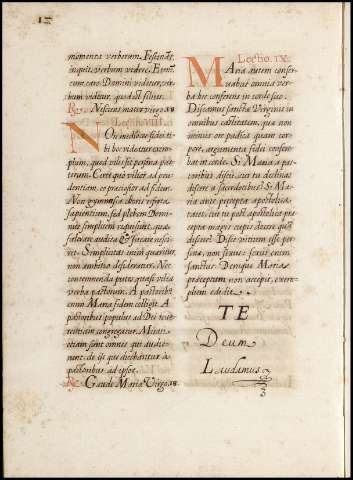 momenta verborum. Festinãt,
inquit, verbum videre. Etenim
cum caro Domini videtur, ver
bum videtur, quod est filius.
℟. Nesciens mater virgo. 18
Lectio. VIII.
NOn mediocre fidei ti
bi hoc videatur exem
plum, quod vilis sit persona pas
torum. Certe quò vilior ad pru
dentiam, eo pretiosior ad fidem.
Non gymnasia choris referta
sapientium, sed plebem Domi
nus simplicem requisivit, quæ
falerare audita & fucare nesci
ret. Simplicitas enim quæritur,
non ambitio desideratur. Nec
contemnenda putes quasi vilia
verba pastorum. A pastoribus
enim Maria fidem colligit. A
pastoribus populus ad Dei reve
rentiam congregatur. Mirati
etiam sunt omnes qui audie
runt: de ijs quæ dicebantur à
pastoribus ad ipsos.
℟. Gaude Maria Virgo. 18
Lectio IX.
MAria autem conser
vabat omnia ver
ba hæc conferens in corde suo.
Discamus sanctæ Virginis in
omnibus castitatem, quæ non
minus ore pudica quam cor
pore, argumenta fidei confere
bat in corde. Si Maria a pas
toribus discit, cur tu declinas
discere a sacerdotibus? Si Ma
ria ante præcepta apostolica
tacet, cur tu post apostolica præ
cepta magis cupis docere quã
discere? Disce vitium esse per
sonæ, non sexus: sexus enim
sanctus. Denique Maria
præceptum non accepit, exem
plum edidit.
TE
Deum
Laudamus